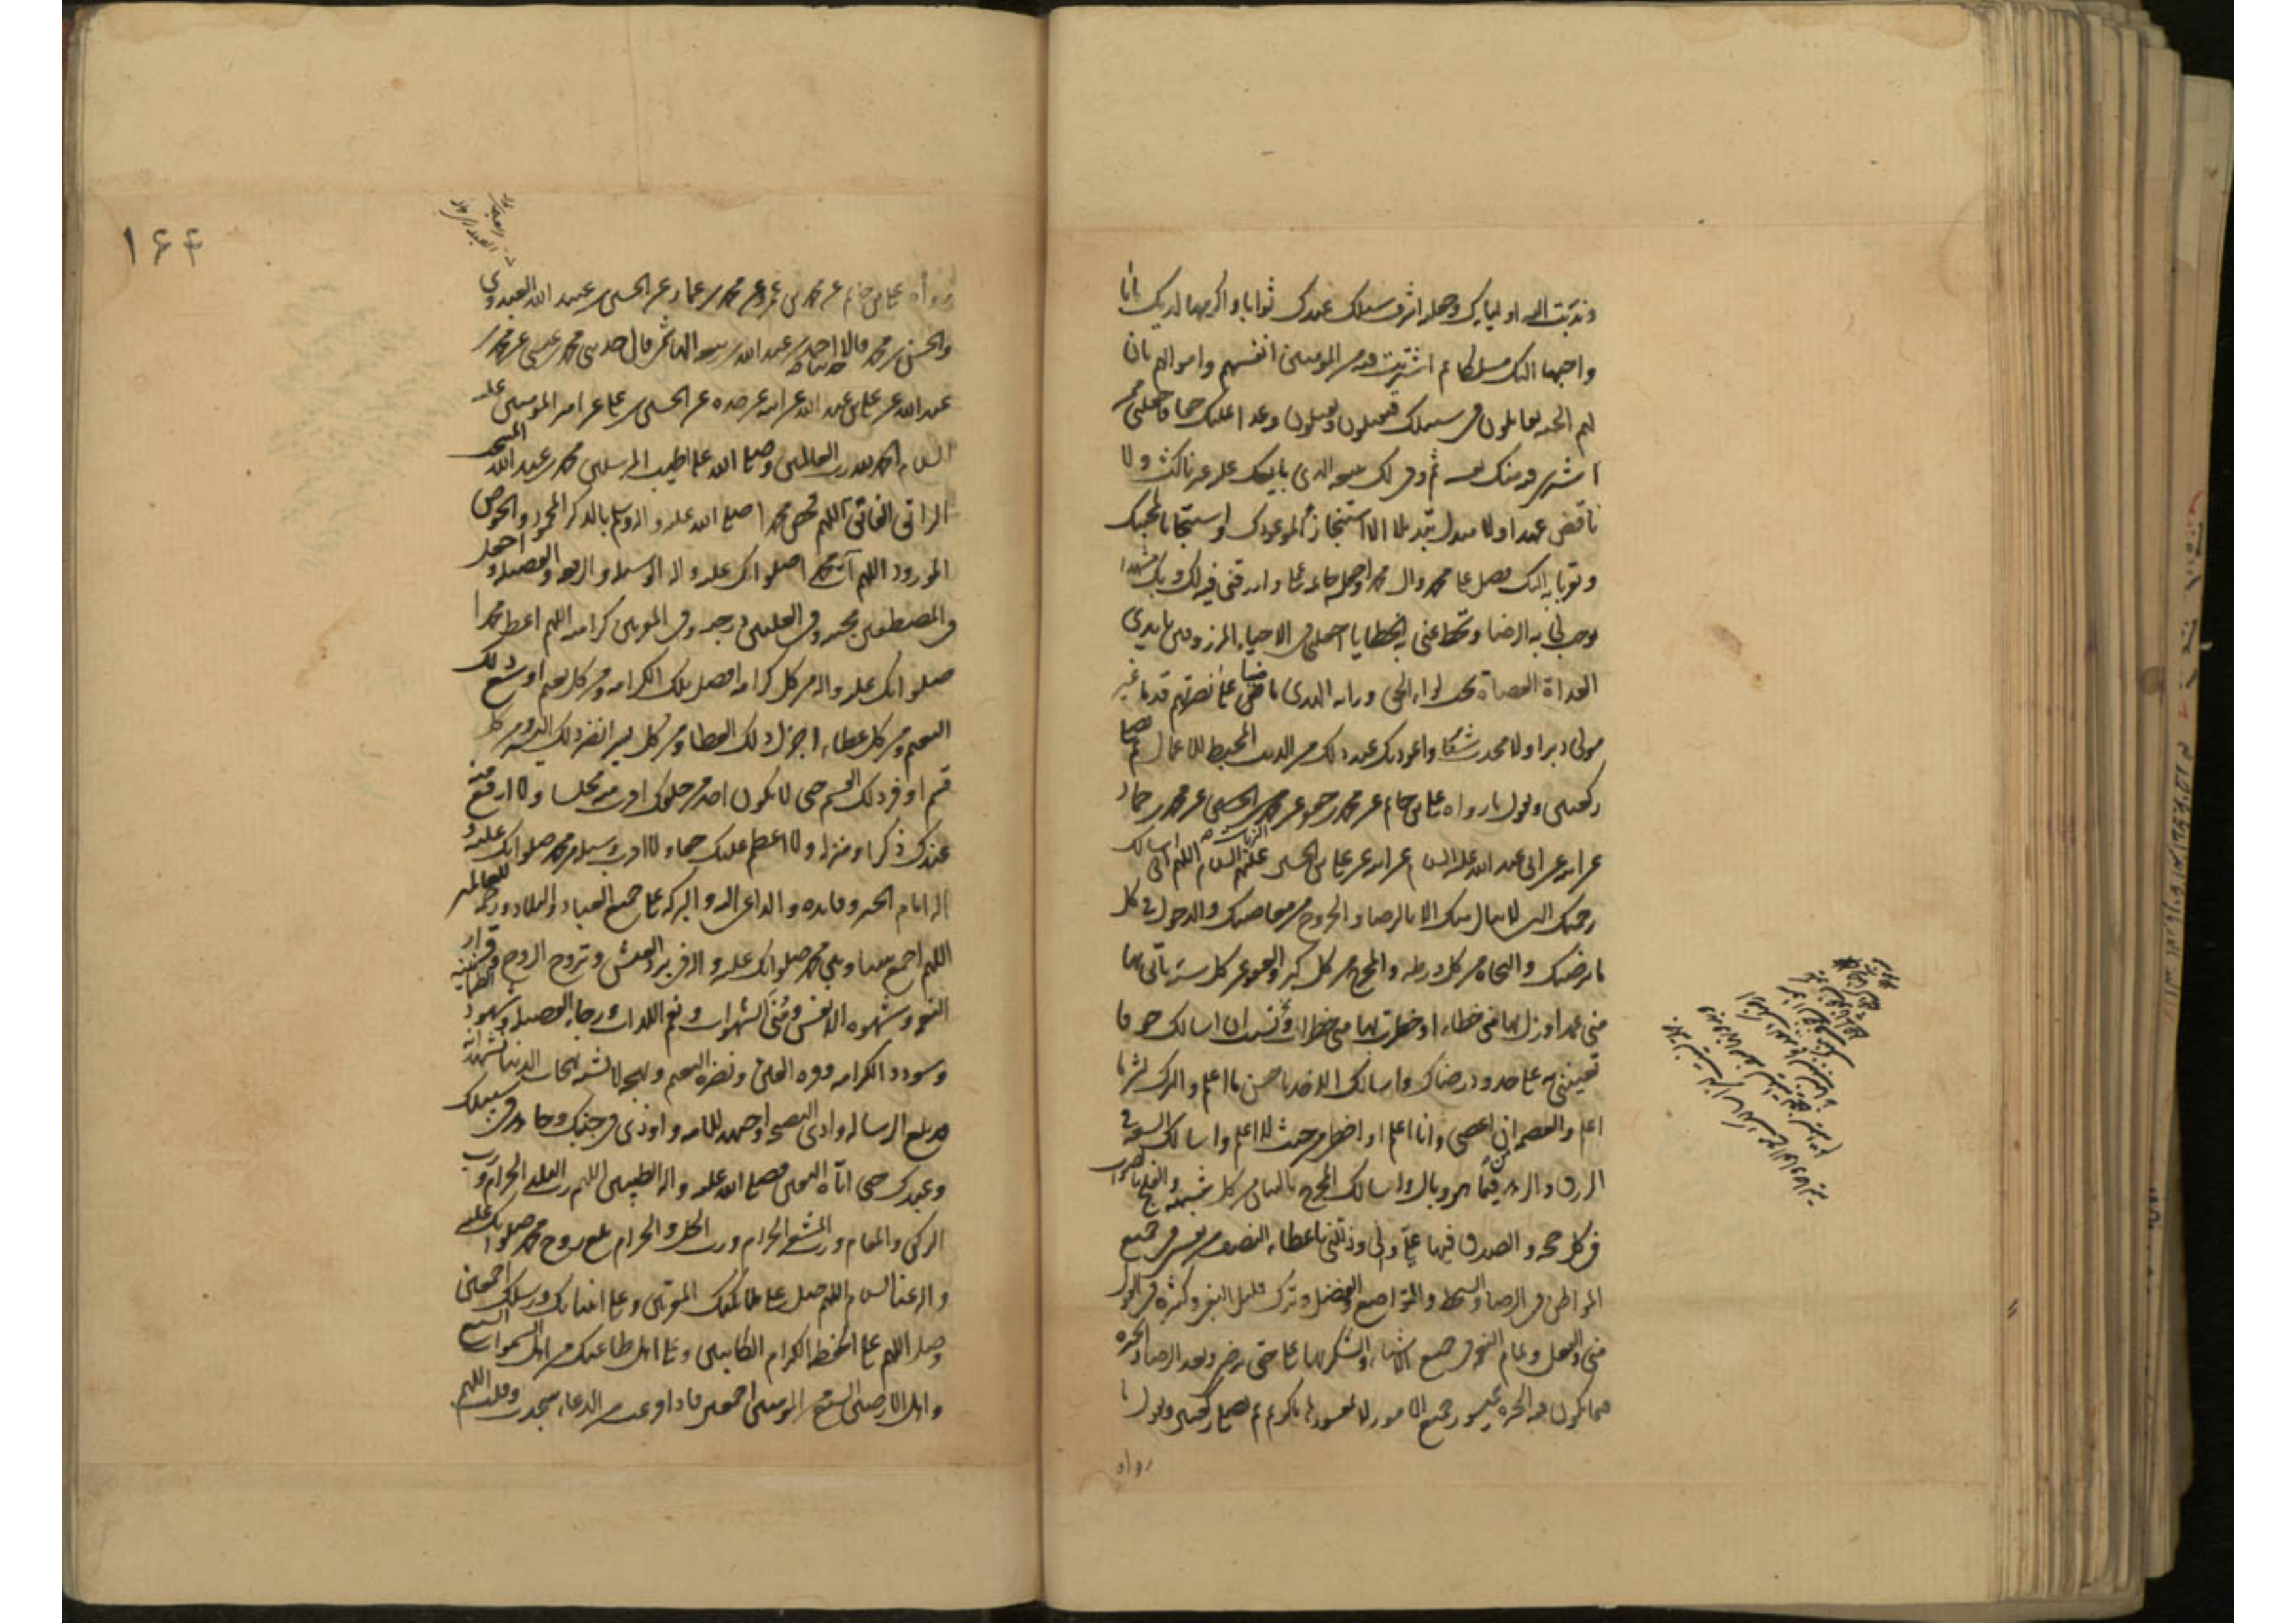 وندبت اليه اولياءك وجعلته اشرف سبلك عندك ثوابا واكرمها لديك مآبا
واحبها اليك مسلكا ثم اشتريت فيه من المؤمنين انفسهم واموالهم بان
لهم الجنه يقاتلون فى سبيلك فيقتلون ويقتلون وعدا عليك حقا فاجعلنى ممن
اشترى فيه منك نفسه ثم وفى لك ببيعه الذى بايعك عليه غير ناكث ولا
ناقض عهدا ولا مبدل تبديلا الا استنجازا لموعودك واستيجابا لمحبتك
وتقربا به اليك فصل على محمد وال محمد واجعله خاتمه عملى وارزقنى فيه لك وبك مشهدا
توجب لى به الرضا وتحط عنى به الخطايا اجعلنى فى الاحياء المرزوقين بايدى
العداة العصاة تحت لواء الحق وراية الهدى ماضيا على نصرتهم قدما غير
مول دبرا ولا محدث شكا واعوذ بك عند ذلك من الذنب المحبط للاعمال ثم تصلى
ركعتين وتقول ما رواه على بن حاتم عن محمد بن عن محمد بن الحسين عن محمد بن حماد
عن ابيه عن ابى عبد الله عليه السلام عن ابيه عن على بن الحسين عليهم السلام اللهم انى اسالك
رحمتك التى لا تنال منك الا بالرضا والخروج من معاصيك والدخول فى كل
ما يرضيك والنجاة من كل ورطه والمخرج من كل كبر والعفو عن كل سيئة ياتى بها
منى عمد او زل بها منى خطاء او خطرت بها منى خطرات نسيت ان اسالك خوفا
تعيننى به على حدود رضاك واسالك الاخذ باحسن ما اعلم والترك لشر ما
اعلم والعصمه ان اعصى وانا اعلم او اخطئ من حيث لا اعلم واسالك السعه فى
الرزق والزهد فيما هو وبال واسالك المخرج بالبيان من كل شبهه والفلج بالصواب
فى كل حجه والصدق فيما على ولى وذللنى باعطاء النصف من نفسى فى جميع
المواطن فى الرضا والسخط والتواضع والفضل وترك قليل البغى وكثيره فى القول
منى والفعل وتمام النعمه فى جميع الاشياء والشكر بها على حتى ترضى وبعد الرضا والخيره
فيما يكون فيه الخيره بميسور جميع الامور لا بمعسورها يا كريم ثم تصلى ركعتين وتقول ما
رواه
۱۶۴
رواه على بن حاتم عن محمد بن عمرو عن محمد بن عماد عن الحسين بن عبيد الله العبدى
والحسن بن محمد قالا حدثنا احمد بن عبد الله بن ربيعه الهاشمى قال حدثنى محمد بن عيسى عن محمد بن
عبد الله عن على بن عبد الله عن ابيه عن جده عن الحسين بن على عن امير المؤمنين عليه
السلام الحمد لله رب العالمين وصلى الله على اطيب المرسلين محمد بن عبد الله المنتجب
الراتق الفاتق اللهم فخص محمدا صلى الله عليه واله وسلم بالذكر المحمود والحوض
المورود اللهم آت محمدا صلواتك عليه واله الوسيله والرفعه والفضيله واجعل
فى المصطفين محبته وفى العليين درجته وفى المقربين كرامته اللهم اعط محمدا
صلواتك عليه واله من كل كرامه افضل تلك الكرامه ومن كل نعيم اوسع ذلك
النعيم ومن كل عطاء اجزل ذلك العطاء ومن كل يسر انضر ذلك اليسر ومن كل
قسم اوفر ذلك القسم حتى لا يكون احد من خلقك اقرب منه مجلسا ولا ارفع منه
عندك ذكرا ومنزله ولا اعظم عليك حقا ولا اقرب وسيله من محمد صلواتك عليه و
اله امام الخير وقايده والداعى اليه والبركه على جميع العباد والبلاد ورحمه للعالمين
اللهم اجمع بيننا وبين محمد صلواتك عليه واله فى برد العيش وتروح الروح وقرار
النعمه وشهوه الانفس ومنى الشهوات ونعم اللذات ورجاء الفضيله وشهود الطمانينه
وسودد الكرامه وقره العين ونضره النعيم وبهجه لا تشبه بهجات الدنيا نشهد انه
قد بلغ الرساله وادى النصيحه واجتهد للامه واوذى فى جنبك وجاهد فى سبيلك
وعبدك حتى اتاه اليقين فصلى الله عليه واله الطيبين اللهم رب البلد الحرام ورب
الركن والمقام ورب المشعر الحرام ورب الحل والحرام بلغ روح محمد صلواتك عليه
واله عنا السلام اللهم صل على ملائكتك المقربين وعلى انبيائك ورسلك اجمعين
وصل اللهم على الحفظه الكرام الكاتبين وعلى اهل طاعتك من اهل السموات السبع
واهل الارضين السبع من المؤمنين اجمعين فاذا فرغت من الدعاء سجدت وقلت اللهم